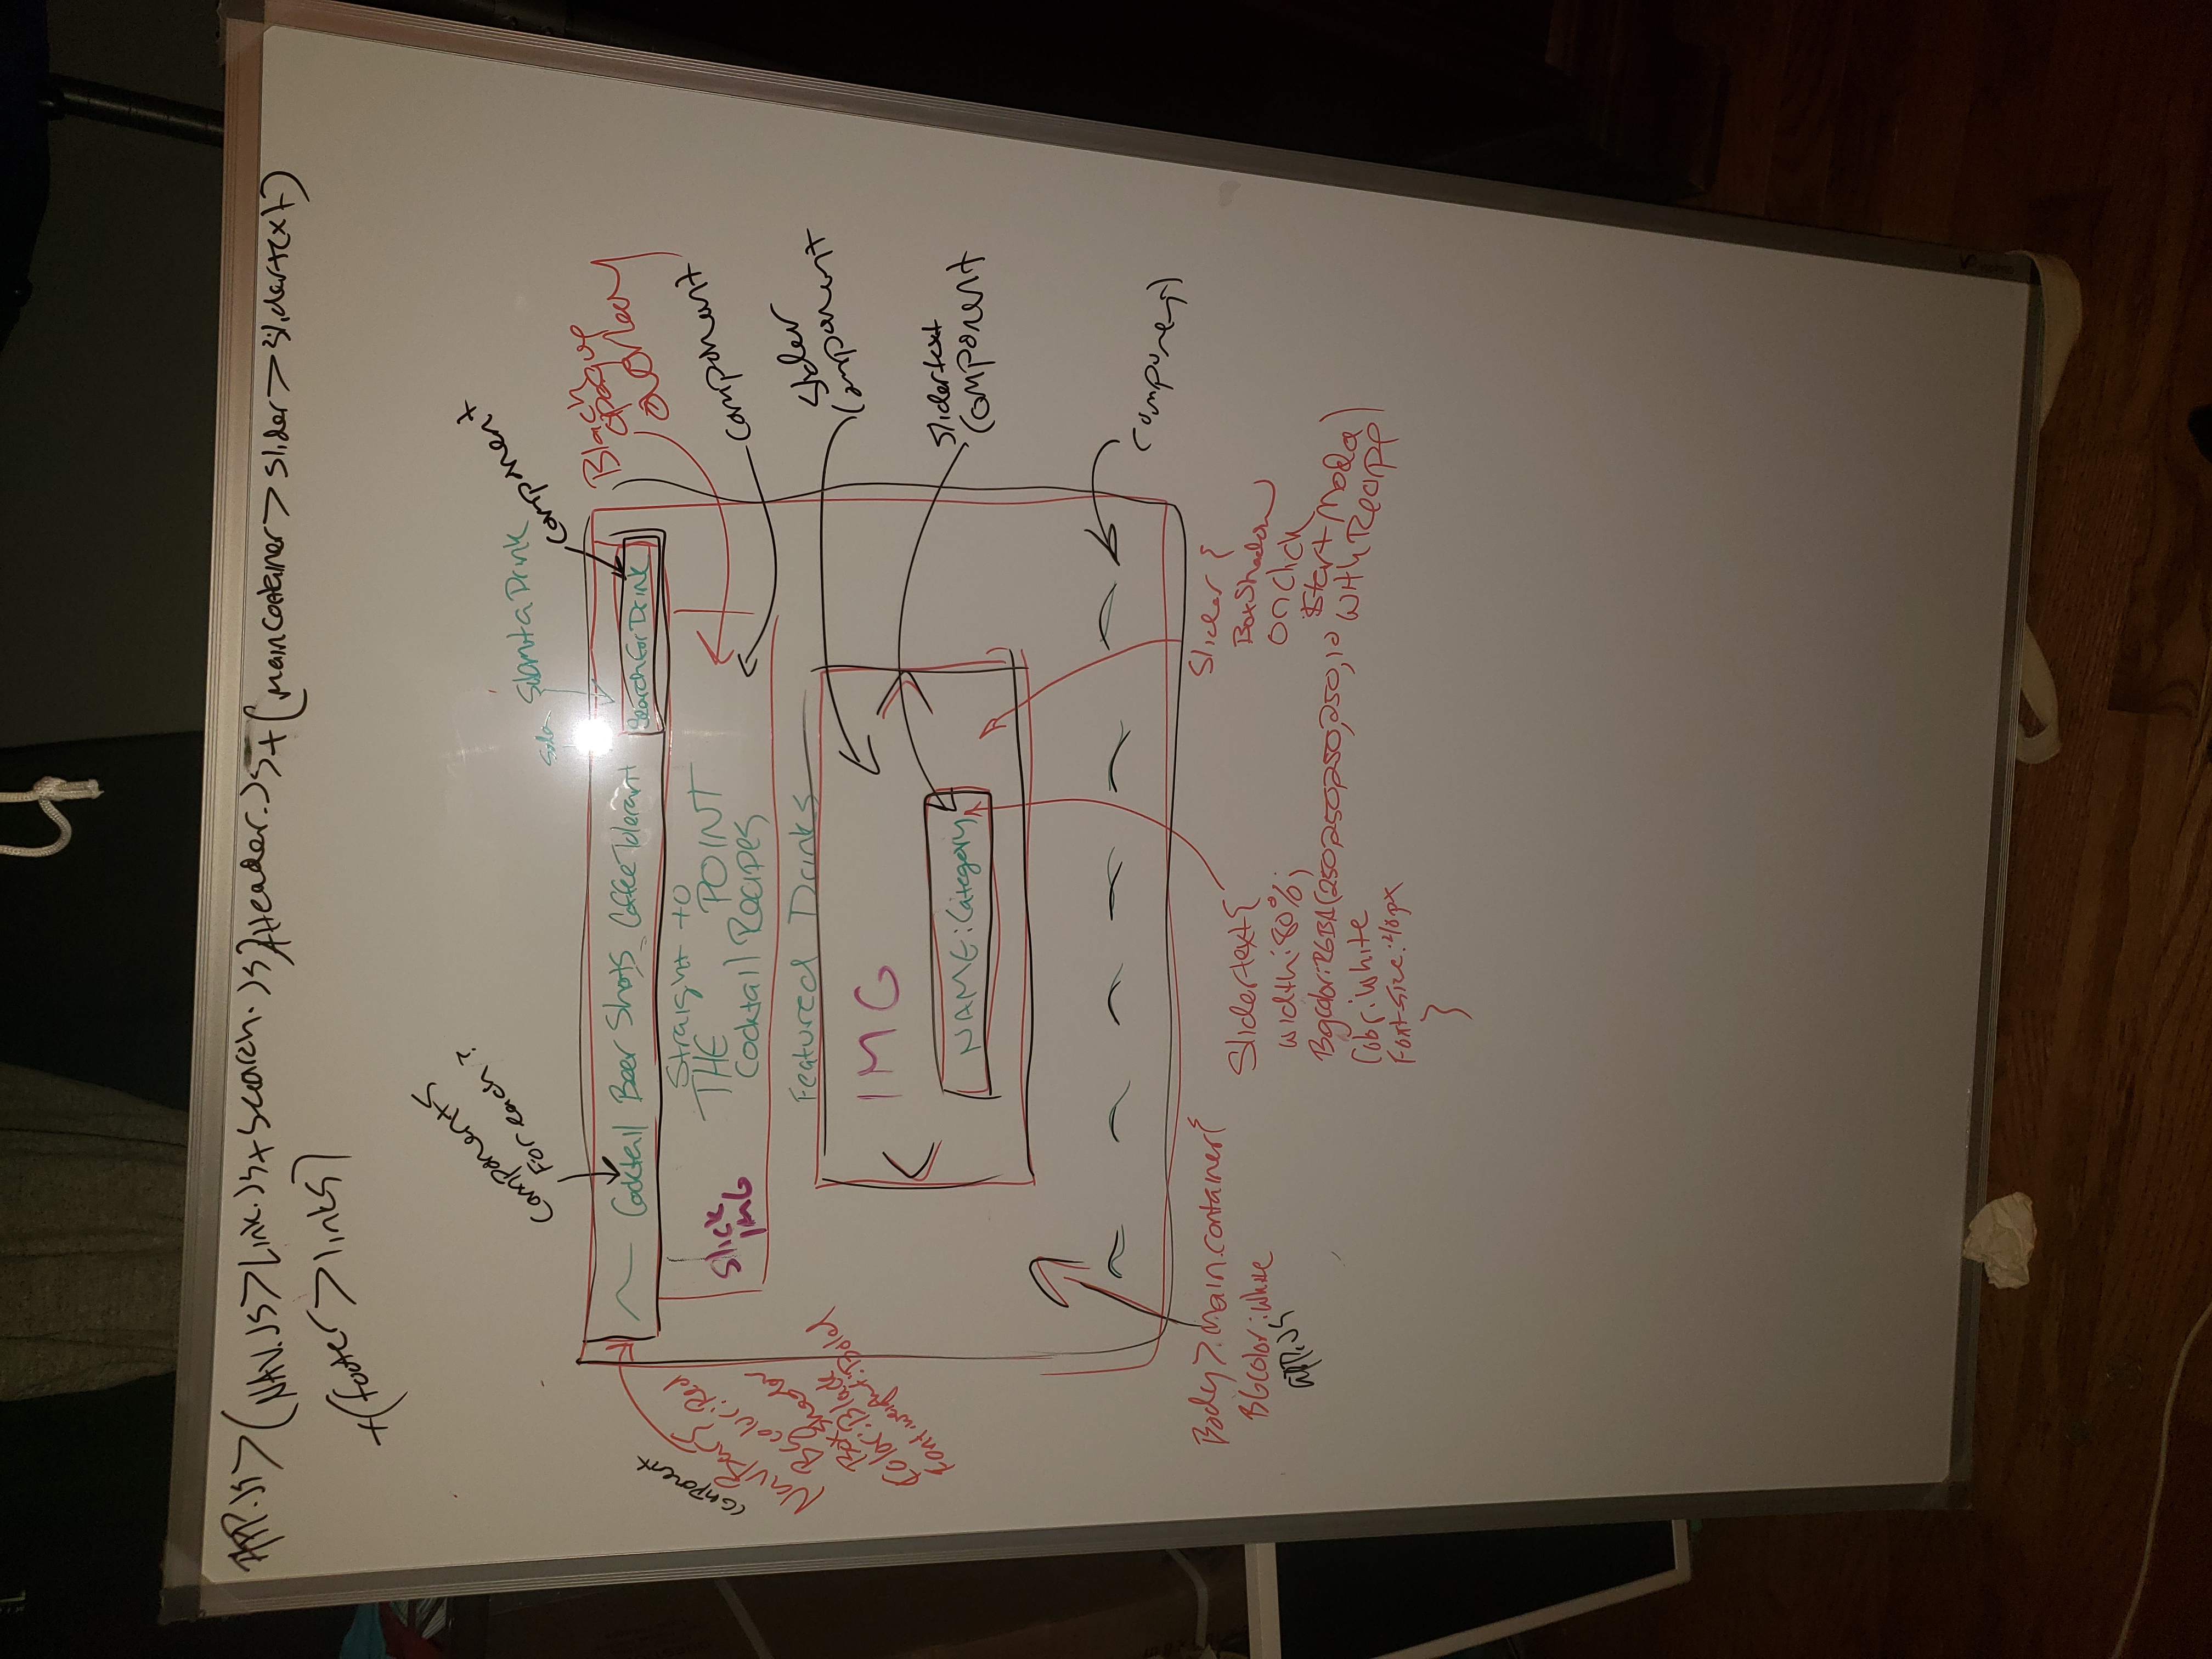 APP.JS>(NAV.JS>Link.JS+Search.JS)+Header.JS+(mainContainer>Slider>Slidertext)
+(footer>links)
Components
For each?
Soda
Submit a Drink
component
Cocktail Beer Shots Coffee Tolerant
Search For Drink
Black
opaque
overlay
component
NavBar{
BGcolor:Red
Box Shadow
Color:Black
Font-weight:Bold
Straight to
THE POINT
Cocktail Recipes
Slick
IMG
component
Featured Drinks
IMG
Slider
Component
NAME:Category
Slidertext
Component
Component
Body>main.container{
BGcolor:white
APP.JS
Slidertext{
width:80%;
Bgcolor:RGBA(250,250,250,250,10
Color:white
Font-size:
}
Slider {
BoxShadow
onClick
Start Modal
with Recipe